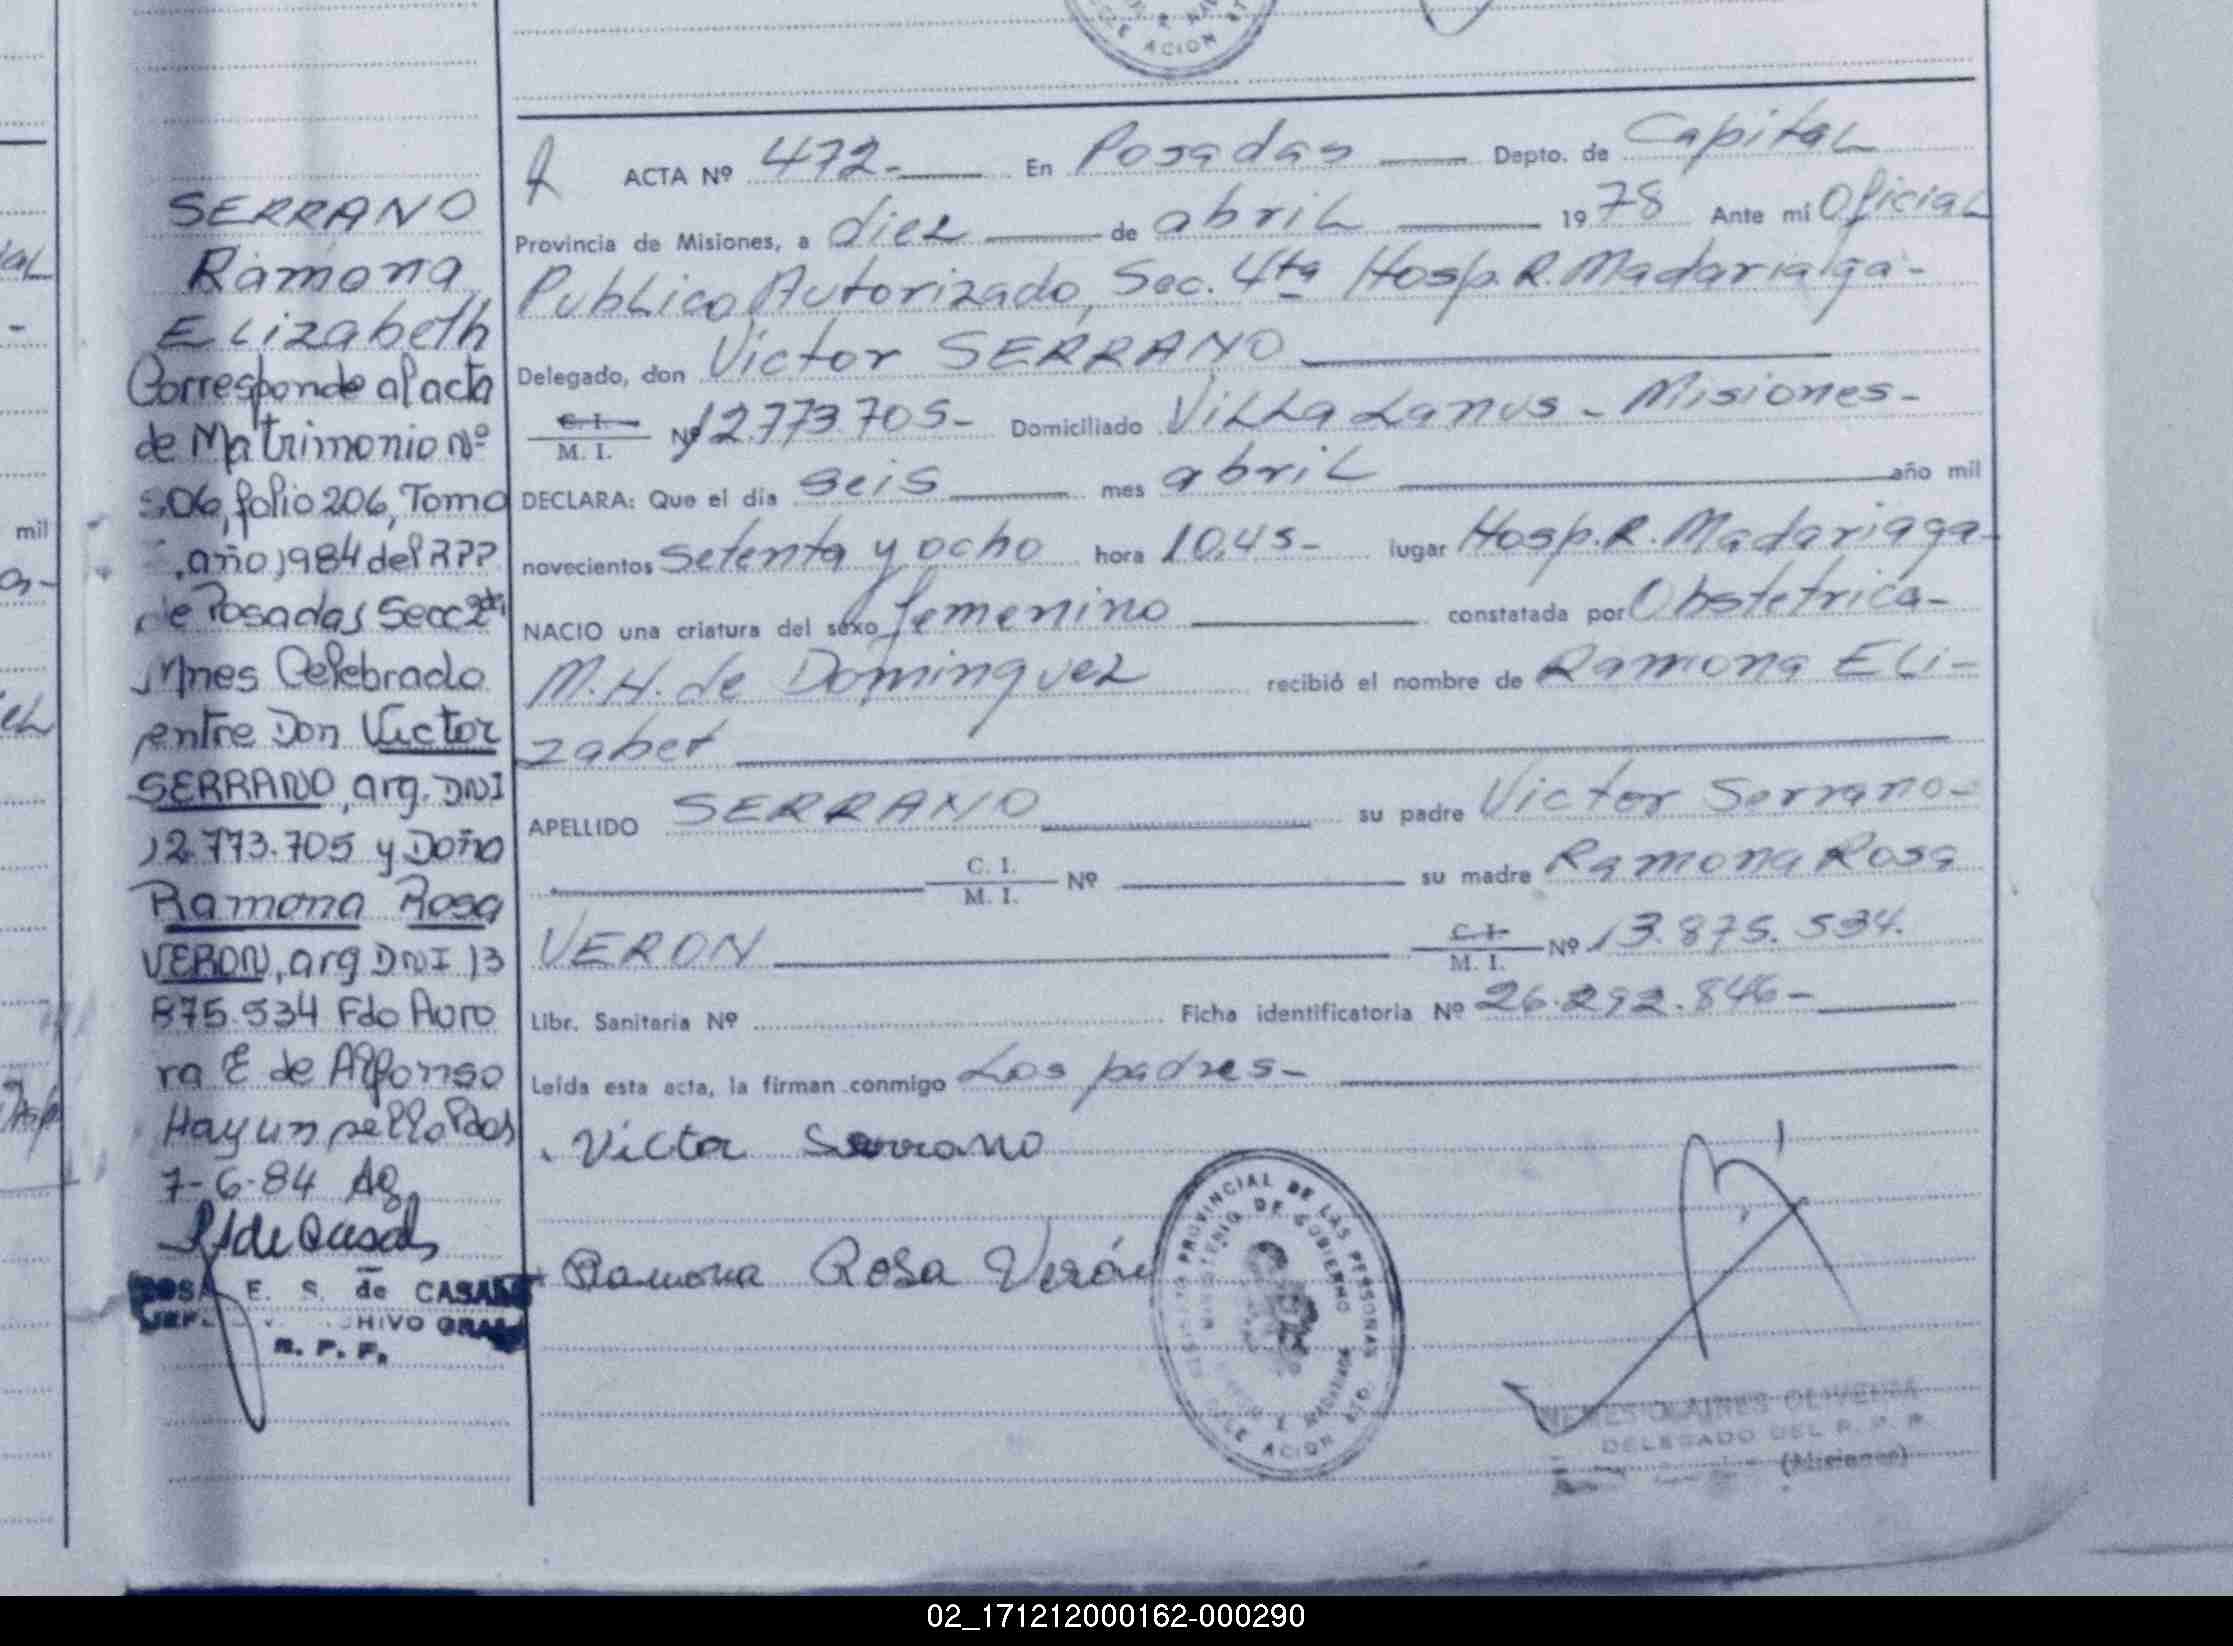 SERRANO
Ramona
Elizabeth
Corresponde al acta
de Matrimonio Nº
506, folio 206, Tomo
, año 1984 del RPP
de Posadas Secc 2da
Mnes Celebrado
entre Don Victor
SERRANO, arg. DNI
12.773.705 y Doña
Ramona Rosa
VERON, arg DNI 13
875.534 Fdo Auro
ra E de Alfonso
Hay un sello Pdas
7-6-84 Ag
E. S. de CASALS
R. P. P.
ACTA Nº 472- En Posadas Depto. de Capital
Provincia de Misiones, a diez de abril 1978 Ante mí Oficial
Publico Autorizado, Sec. 4ta Hosp. R. Madariaga-
Delegado, don Victor SERRANO
C. I. / M. I. Nº 12.773.705- Domiciliado Villa Lanus - Misiones-
DECLARA: Que el día seis mes abril año mil
novecientos setenta y ocho hora 10,45- lugar Hosp. R. Madariaga-
NACIO una criatura del sexo femenino constatada por Obstetrica-
M.H. de Dominguez recibió el nombre de Ramona Eli-
zabet
APELLIDO SERRANO su padre Victor Serrano-
C. I. / M. I. Nº su madre Ramona Rosa
VERON C. I. / M. I. Nº 13.875.534.
Libr. Sanitaria Nº Ficha identificatoria Nº 26.292.846-
Leída esta acta, la firman conmigo Los padres-
Victor Serrano
Ramona Rosa Verón
PROVINCIAL DE LAS PERSONAS
MINISTERIO DE GOBIERNO
OLIVEIRA
DELEGADO DEL R. P. P.
(Misiones)
02_171212000162-000290